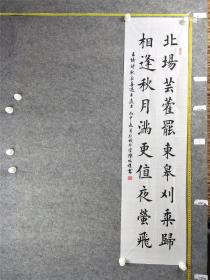 北場芸藿罷東皋刈黍歸
相逢秋月滿更值夜螢飛
王績詩秋夜喜遇王處士